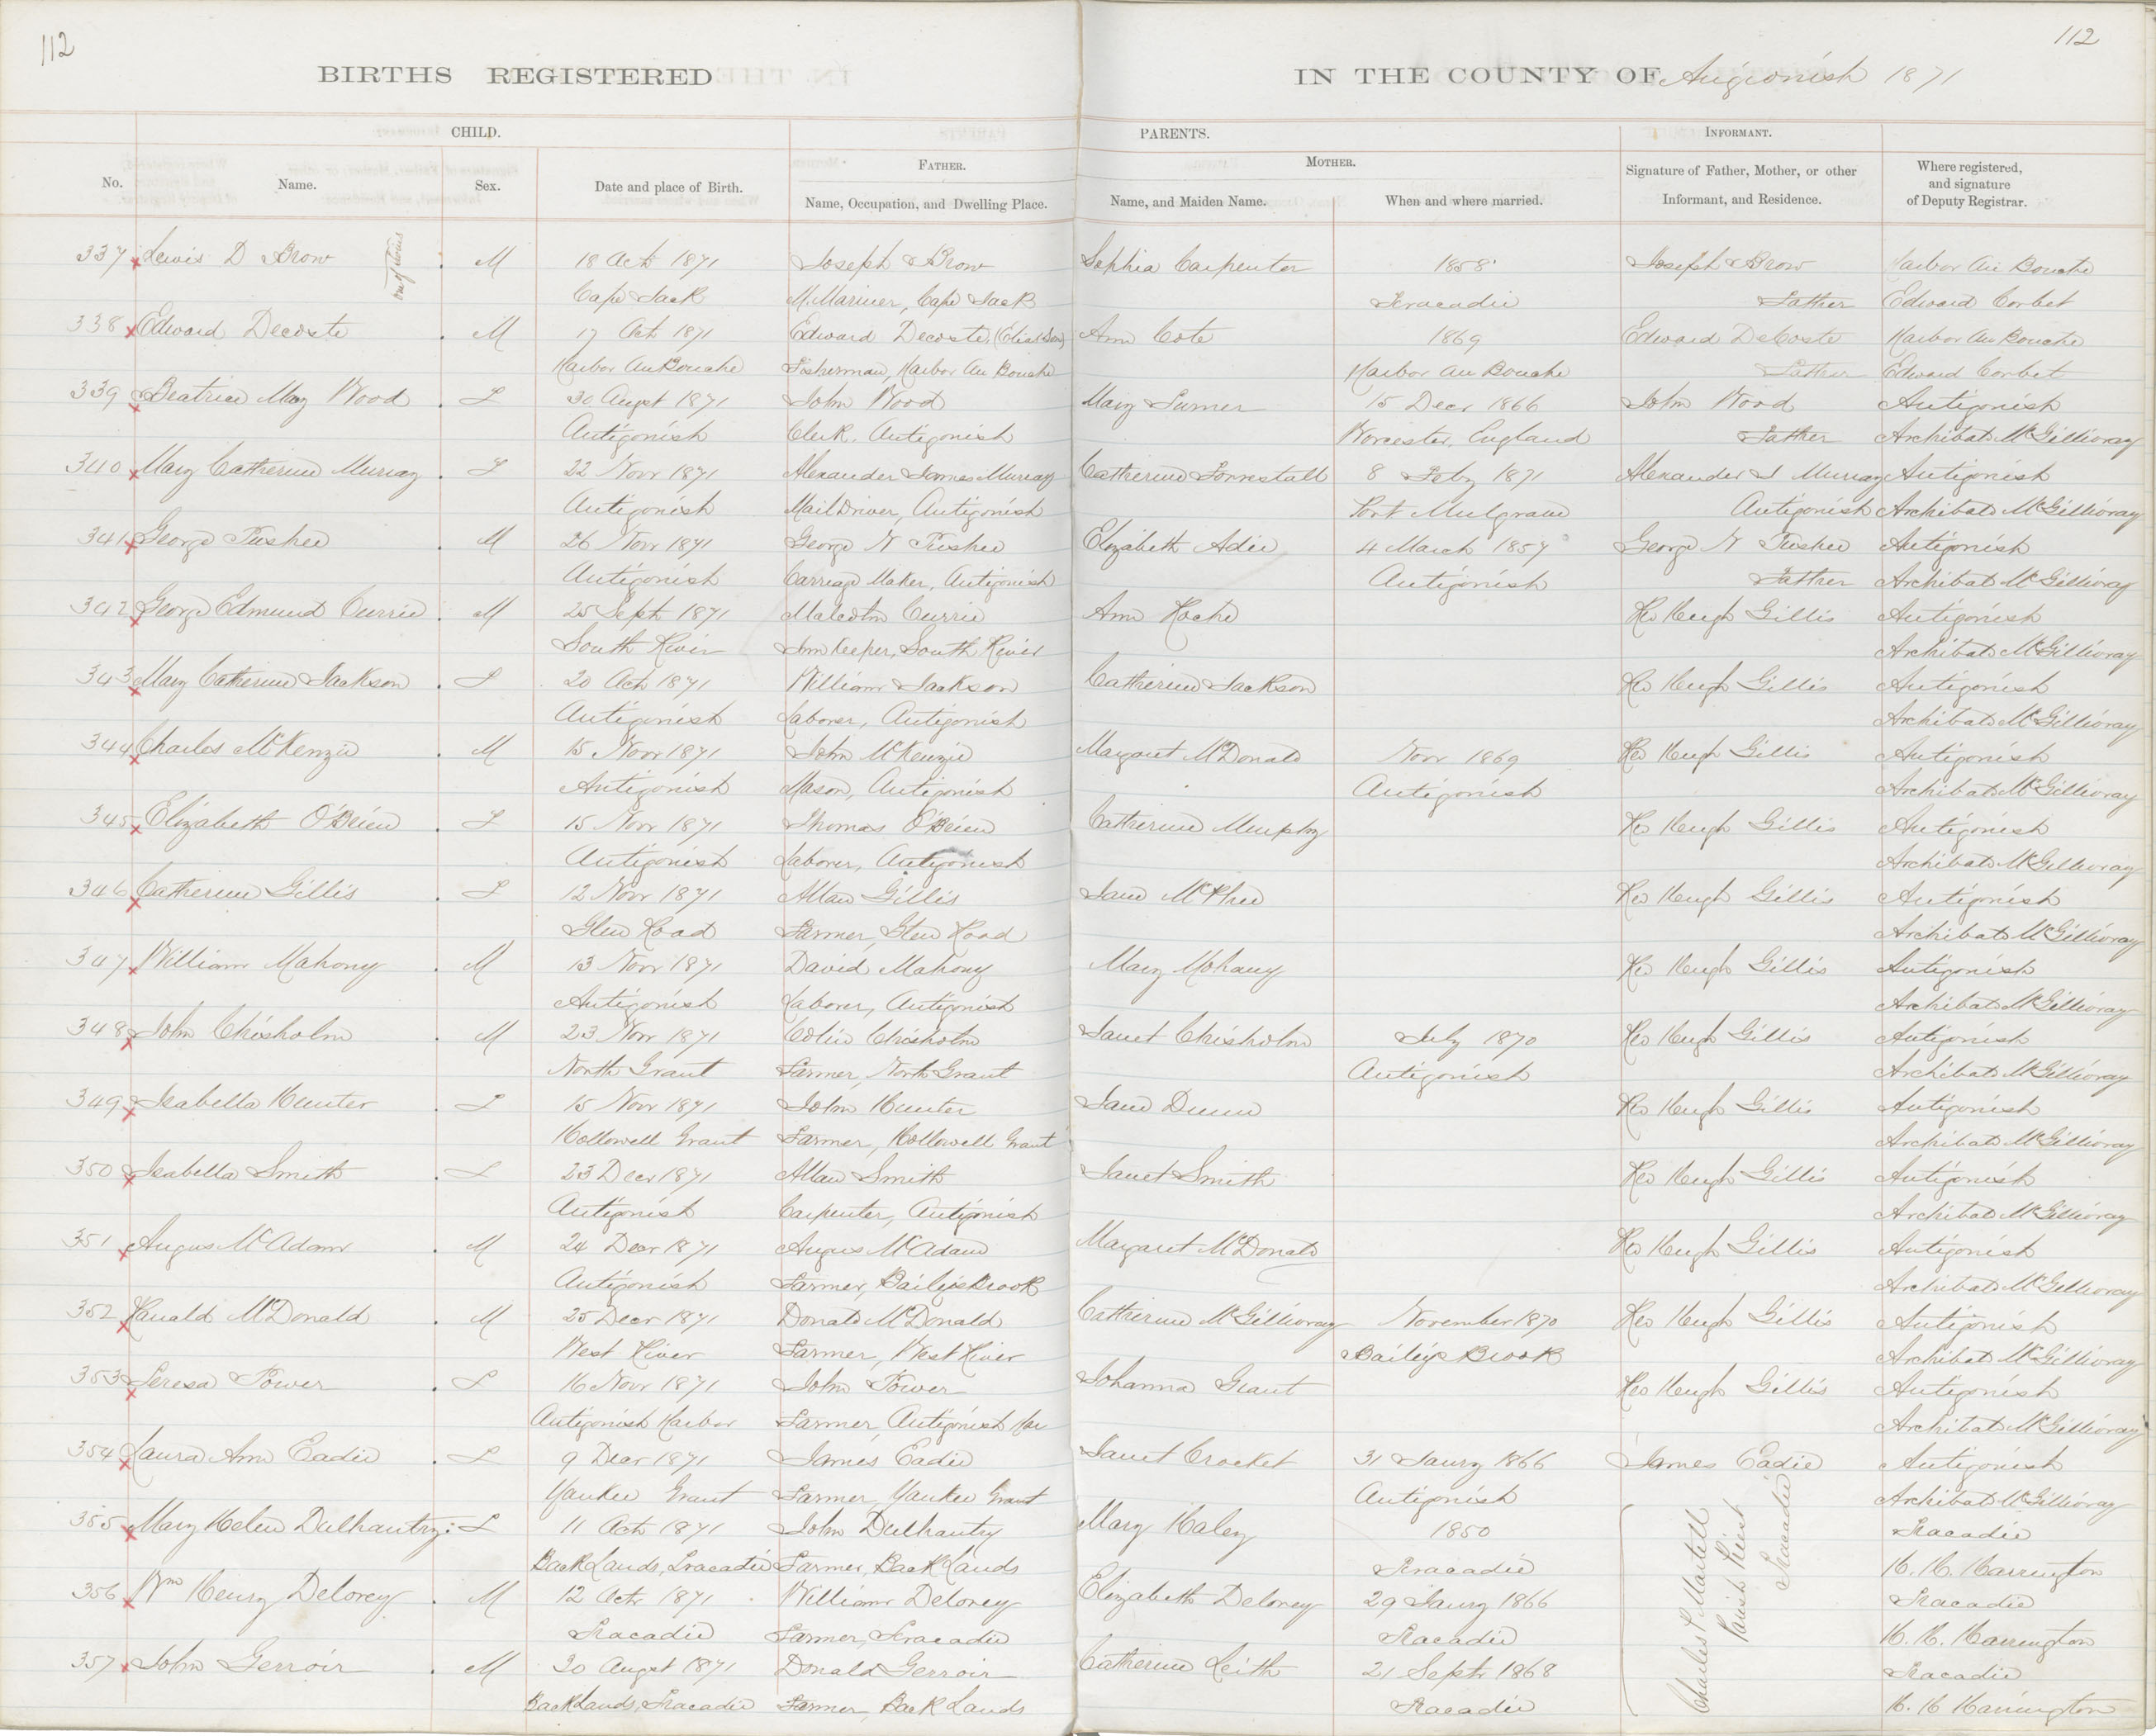 112
112
BIRTHS REGISTERED IN THE COUNTY OF Antigonish 1871
CHILD. PARENTS. INFORMANT.
FATHER. MOTHER.
No. Name. Sex. Date and place of Birth. Name, Occupation, and Dwelling Place. Name, and Maiden Name. When and where married. Signature of Father, Mother, or other Informant, and Residence. Where registered, and signature of Deputy Registrar.
337 Lewis D Brow one of twins M 18 Oct 1871 Joseph Brow Sophia Carpenter 1858 Joseph Brow Harbor Au Bouche
Cape Jack M. Mariner, Cape Jack Tracadie Father Edward Corbet
338 Edward Decoste M 17 Oct 1871 Edward Decoste (Elias Son) Ann Cote 1869 Edward DeCoste Harbor Au Bouche
Harbor Au Bouche Fisherman, Harbor Au Bouche Harbor au Bouche Father Edward Corbet
339 Beatrice May Wood F 30 Augst 1871 John Wood Mary Turner 15 Decr 1866 John Wood Antigonish
Antigonish Clerk. Antigonish Worcester, England Father Archibald McGillivray
340 Mary Catherine Murray F 22 Novr 1871 Alexander James Murray Catherine Forrestall 8 Feby 1871 Alexander J Murray Antigonish
Antigonish Mail Driver, Antigonish Port Mulgrave Antigonish Archibald McGillivray
341 George Fisher M 26 Novr 1871 George N Fisher Elizabeth Adie 4 March 1857 George N Fisher Antigonish
Antigonish Carriage Maker, Antigonish Antigonish Father Archibald McGillivray
342 George Edmund Currie M 25 Sept 1871 Malcolm Currie Ann Roche Rev Hugh Gillis Antigonish
South River Inn Keeper, South River Archibald McGillivray
343 Mary Catherine Jackson F 20 Oct 1871 William Jackson Catherine Jackson Rev Hugh Gillis Antigonish
Antigonish Laborer, Antigonish Archibald McGillivray
344 Charles McKenzie M 15 Novr 1871 John McKenzie Margaret McDonald Novr 1869 Rev Hugh Gillis Antigonish
Antigonish Mason, Antigonish Antigonish Archibald McGillivray
345 Elizabeth O'Brien F 15 Novr 1871 Thomas O'Brien Catherine Murphy Rev Hugh Gillis Antigonish
Antigonish Laborer, Antigonish Archibald McGillivray
346 Catherine Gillis F 12 Novr 1871 Allan Gillis Jane McPhee Rev Hugh Gillis Antigonish
Glen Road Farmer, Glen Road Archibald McGillivray
347 William Mahony M 13 Novr 1871 David Mahony Mary Mohany Rev Hugh Gillis Antigonish
Antigonish Laborer, Antigonish Archibald McGillivray
348 John Chisholm M 23 Novr 1871 Colin Chisholm Janet Chisholm July 1870 Rev Hugh Gillis Antigonish
North Grant Farmer, North Grant Antigonish Archibald McGillivray
349 Isabella Hunter F 15 Novr 1871 John Hunter Jane Dunn Rev Hugh Gillis Antigonish
Hollowell Grant Farmer, Hollowell Grant Archibald McGillivray
350 Isabella Smith F 23 Decr 1871 Allan Smith Janet Smith Rev Hugh Gillis Antigonish
Antigonish Carpenter, Antigonish Archibald McGillivray
351 Angus McAdam M 24 Decr 1871 Angus McAdam Margaret McDonald Rev Hugh Gillis Antigonish
Antigonish Farmer, Baileys Brook Archibald McGillivray
352 Ranald McDonald M 25 Decr 1871 Donald McDonald Catherine McGillivray November 1870 Rev Hugh Gillis Antigonish
West River Farmer, West River Baileys Brook Archibald McGillivray
353 Teresa Power F 16 Novr 1871 John Power Johanna Grant Rev Hugh Gillis Antigonish
Antigonish Harbor Farmer, Antigonish Har Archibald McGillivray
354 Laura Ann Eadie F 9 Decr 1871 James Eadie Janet Crocket 31 Jany 1866 James Eadie Antigonish
Yankee Grant Farmer, Yankee Grant Antigonish Archibald McGillivray
355 Mary Helen Dulhantry F 11 Oct 1871 John Dulhantry Mary Haley 1850 Charles P Martell Tracadie
Back Lands, Tracadie Farmer, Back Lands Tracadie Parish Priest H. H. Harrington
356 Wm Henry Delorey M 12 Octr 1871 William Delorey Elizabeth Delorey 29 Jany 1866 Tracadie Tracadie
Tracadie Farmer, Tracadie Tracadie H. H. Harrington
357 John Gerroir M 20 Augst 1871 Donald Gerroir Catherine Leith 21 Septr 1868 Tracadie
Back Lands, Tracadie Farmer, Back Lands Tracadie H. H Harrington